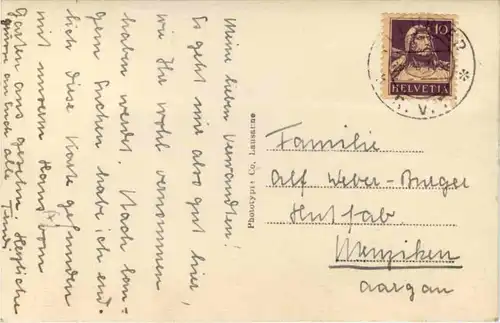 Meine lieben Verwandten!
Es geht mir also gut hier,
wie Ihr wohl vernommen
haben werdet. Nach lan-
gem Suchen habe ich end-
lich diese Karte gefunden
mit unserm Haus vom
Garten aus gesehn. Herzliche
Grüsse an Euch alle Trudi
Phototypie Co, Lausanne
10
HELVETIA
Familie
Alf Weber-Burger
Hutfab.
Menziken
Aargau